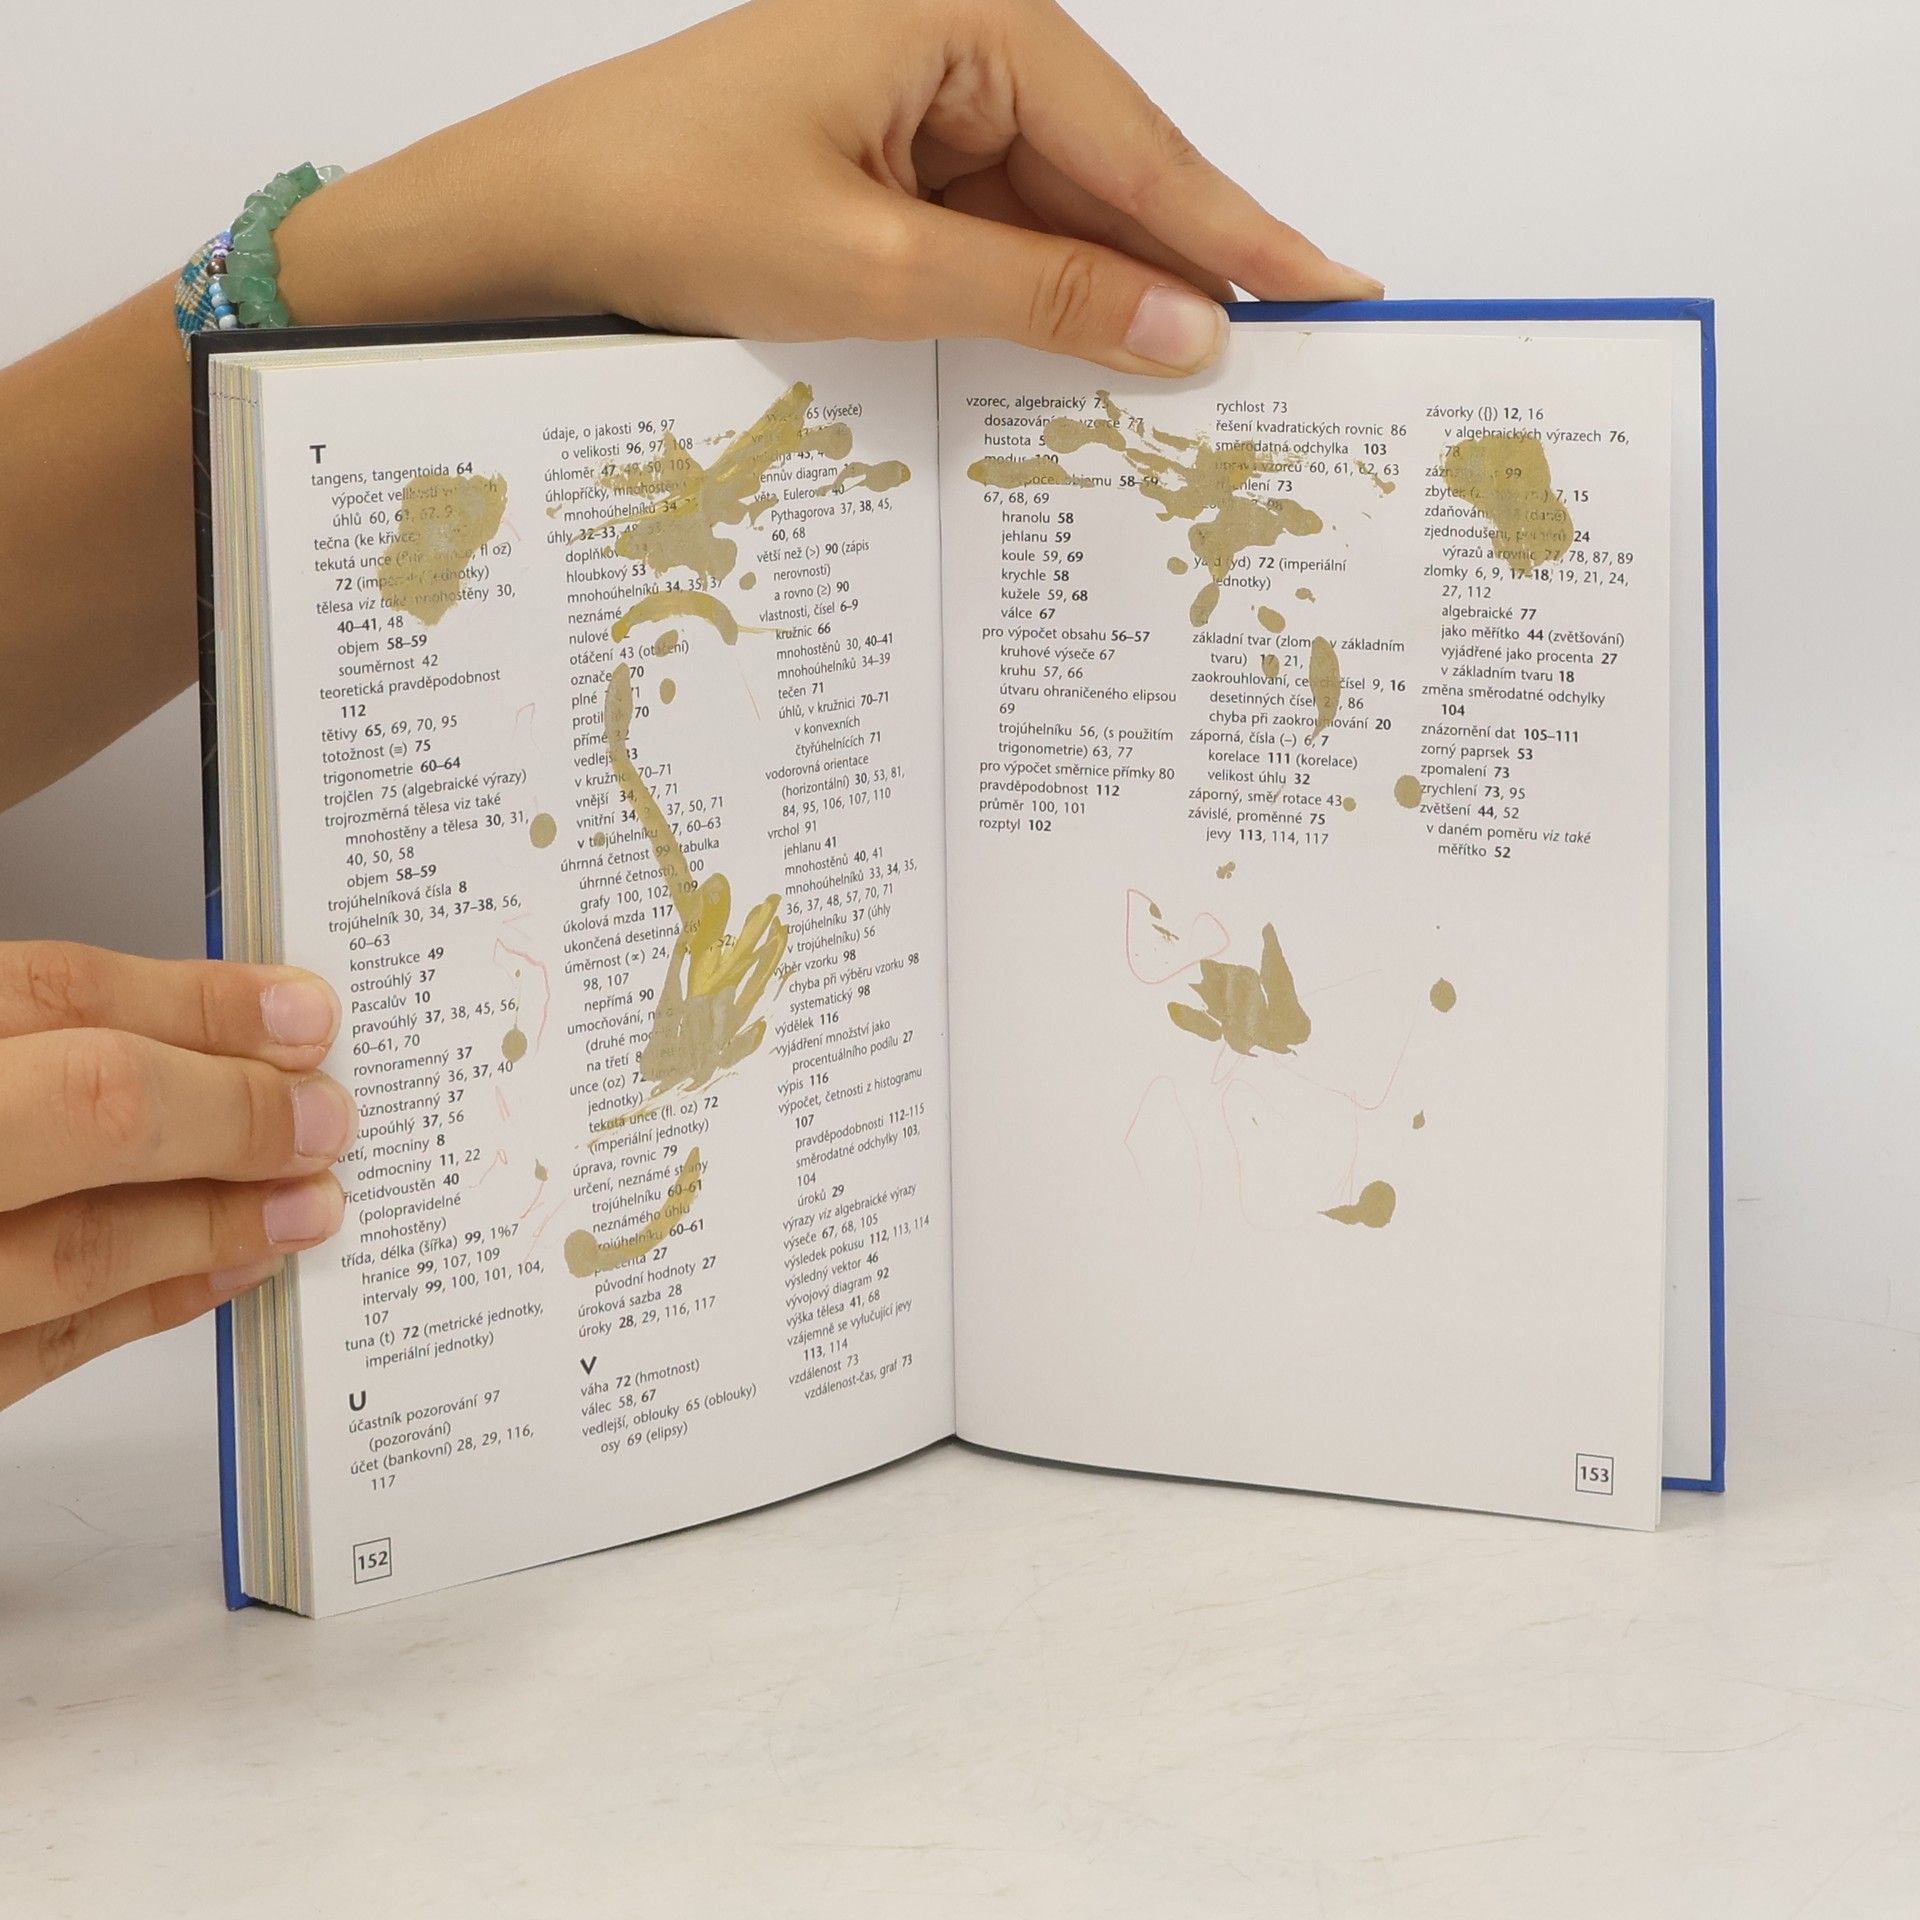 T
tangens, tangentoida 64
výpočet
úhlů 60,
tečna (ke
tekutá unce fl oz)
72 jednotky)
tělesa viz také mnohostěny 30,
40–41, 48
objem 58–59
souměrnost 42
teoretická pravděpodobnost
112
tětivy 65, 69, 70, 95
totožnost (≡) 75
trigonometrie 60–64
trojčlen 75 (algebraické výrazy)
trojrozměrná tělesa viz také
mnohostěny a tělesa 30, 31,
40, 50, 58
objem 58–59
trojúhelníková čísla 8
trojúhelník 30, 34, 37–38, 56,
60–63
konstrukce 49
ostroúhlý 37
Pascalův 10
pravoúhlý 37, 38, 45, 56,
60–61, 70
rovnoramenný 37
rovnostranný 36, 37, 40
různostranný 37
tupoúhlý 37, 56
mocniny 8
odmocniny 11, 22
40
(polopravidelné
mnohostěny)
třída, délka (šířka) 99, 1%7
hranice 99, 107, 109
intervaly 99, 100, 101, 104,
107
tuna (t) 72 (metrické jednotky,
imperiální jednotky)
U
účastník pozorování 97
(pozorování)
účet (bankovní) 28, 29, 116,
117
152
údaje, o jakosti 96, 97
o velikosti 96, 97, 108
úhloměr 47, 49, 50, 105
úhlopříčky,
mnohoúhelníků 34
úhly 32–33,
hloubkový 53
mnohoúhelníků 34, 35, 37
neznámé
nulové
otáčení 43 (otáčení)
70
plné
70
přímé
vedlejší 33
v kružnici 70–71
vnější 34, 37, 71
vnitřní 34, 37, 50, 71
v trojúhelníku 37, 60–63
úhrnná četnost 99 (tabulka
úhrnné četnosti), 100
grafy 100, 102, 109
úkolová mzda 117
ukončená desetinná
úměrnost (∝) 24, 52,
98, 107
nepřímá 90
umocňování,
(druhé
na třetí 8
unce (oz) 72
jednotky)
tekutá unce (fl. oz) 72
(imperiální jednotky)
úprava, rovnic 79
určení, neznámé strany
trojúhelníku 60–61
neznámého úhlu
trojúhelníku 60–61
27
původní hodnoty 27
úroková sazba 28
úroky 28, 29, 116, 117
V
váha 72 (hmotnost)
válec 58, 67
vedlejší, oblouky 65 (oblouky)
osy 69 (elipsy)
65 (výseče)
diagram
věta, Eulerova 40
Pythagorova 37, 38, 45,
60, 68
větší než (>) 90 (zápis
nerovností)
a rovno (≥) 90
vlastnosti, čísel 6–9
kružnic 66
mnohostěnů 30, 40–41
mnohoúhelníků 34–39
tečen 71
úhlů, v kružnici 70–71
v konvexních
čtyřúhelnících 71
vodorovná orientace
(horizontální) 30, 53, 81,
84, 95, 106, 107, 110
vrchol 91
jehlanu 41
mnohostěnů 40, 41
mnohoúhelníků 33, 34, 35,
36, 37, 48, 57, 70, 71
trojúhelníku 37 (úhly
v trojúhelníku) 56
výběr vzorku 98
chyba při výběru vzorku 98
systematický 98
výdělek 116
vyjádření množství jako
procentuálního podílu 27
výpis 116
výpočet, četnosti z histogramu
107
pravděpodobnosti 112–115
směrodatné odchylky 103,
104
úroků 29
výrazy viz algebraické výrazy
výseče 67, 68, 105
výsledek pokusu 112, 113, 114
výsledný vektor 46
vývojový diagram 92
výška tělesa 41, 68
vzájemně se vylučující jevy
113, 114
vzdálenost 73
vzdálenost-čas, graf 73
vzorec, algebraický
hustota
objemu 58–59,
67, 68, 69
hranolu 58
jehlanu 59
koule 59, 69
krychle 58
kužele 59, 68
válce 67
pro výpočet obsahu 56–57
kruhové výseče 67
kruhu 57, 66
útvaru ohraničeného elipsou
69
trojúhelníku 56, (s použitím
trigonometrie) 63, 77
pro výpočet směrnice přímky 80
pravděpodobnost 112
průměr 100, 101
rozptyl 102
rychlost 73
řešení kvadratických rovnic 86
směrodatná odchylka 103
úprava vzorců 60, 61, 62, 63
zrychlení 73
yard (yd) 72 (imperiální
jednotky)
základní tvar (zlomky v základním
tvaru) 17, 21,
zaokrouhlování, celých čísel 9, 16
desetinných čísel 86
chyba při zaokrouhlování 20
záporná, čísla (–) 6, 7
korelace 111 (korelace)
velikost úhlu 32
záporný, směr rotace 43
závislé, proměnné 75
jevy 113, 114, 117
závorky ({}) 12, 16
v algebraických výrazech 76,
78
99
zbytek 7, 15
zdaňování (daně)
zjednodušení, poměrů 24
výrazů a rovnic 27, 78, 87, 89
zlomky 6, 9, 17–18, 19, 21, 24,
27, 112
algebraické 77
jako měřítko 44 (zvětšování)
vyjádřené jako procenta 27
v základním tvaru 18
změna směrodatné odchylky
104
znázornění dat 105–111
zorný paprsek 53
zpomalení 73
zrychlení 73, 95
zvětšení 44, 52
v daném poměru viz také
měřítko 52
153